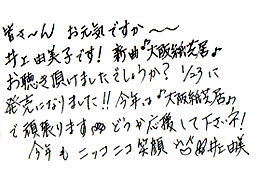 皆さ〜ん お元気ですか〜
井上由美子です! 新曲♪大阪紙芝居♪
お聴き頂けましたでしょうか? 1/23に
発売になりました!! 今年は♪大阪紙芝居♪
で頑張ります どうか応援して下さいネ!
今年もニッコニコ笑顔で 井上由美